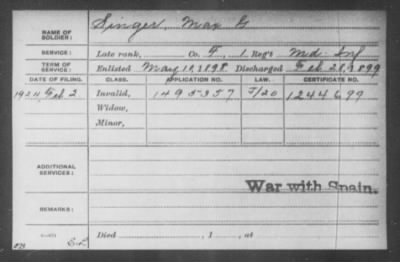 NAME OF SOLDIER: Singer, Max G
SERVICE: Late rank, Co. F, 1 Reg't Md. Inf
TERM OF SERVICE: Enlisted May 10, 1898 Discharged Feb 28, 1899
DATE OF FILING. CLASS. APPLICATION NO. LAW. CERTIFICATE NO.
1924, Feb 2 Invalid, 1495357 J/20 1244699
Widow,
Minor,
ADDITIONAL SERVICES:
War with Spain.
REMARKS:
Died , 1 , at